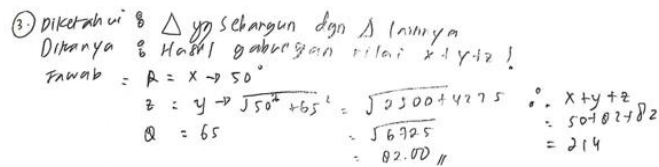 ③ Diketahui : △ yg sebangun dgn △ lainnya
Ditanya : Hasil gabungan nilai x+y+z !
Jawab = P = x → 50°
z : y → √50² + 65² = √2500 + 4225 ∴ x+y+z
Q = 65 = √6725 = 50+82+82
= 82.00 // = 214